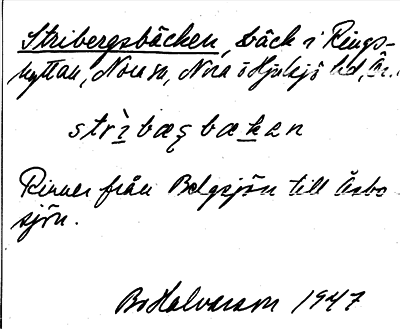 Stribergsbäcken, bäck i Rings-
hyttan, Nora sn, Nora o Hjulsjö bd, Ör.
strìbæŗbækan
Rinner från Belgsjön till Åsbo
sjön.
Bo Halvarson 1947